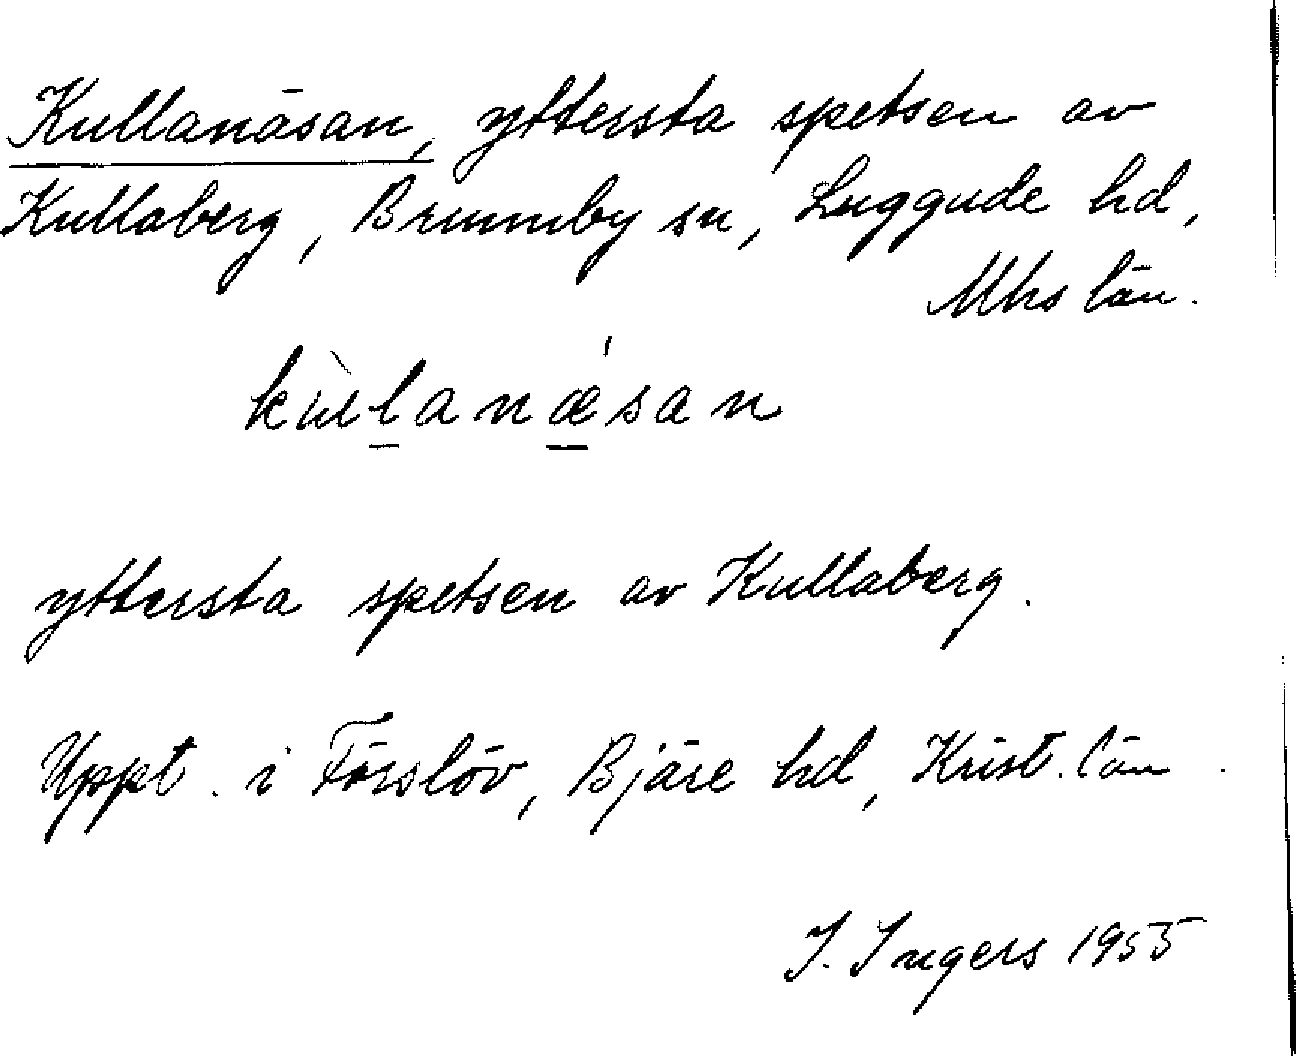 Kullanäsan, yttersta spetsen av
Kullaberg, Brunnby sn, Luggude hd,
Mhs län.
kùlanǽsan
yttersta spetsen av Kullaberg.
Uppt. i Förslöv, Bjäre hd, Krist. län.
I. Ingers 1955